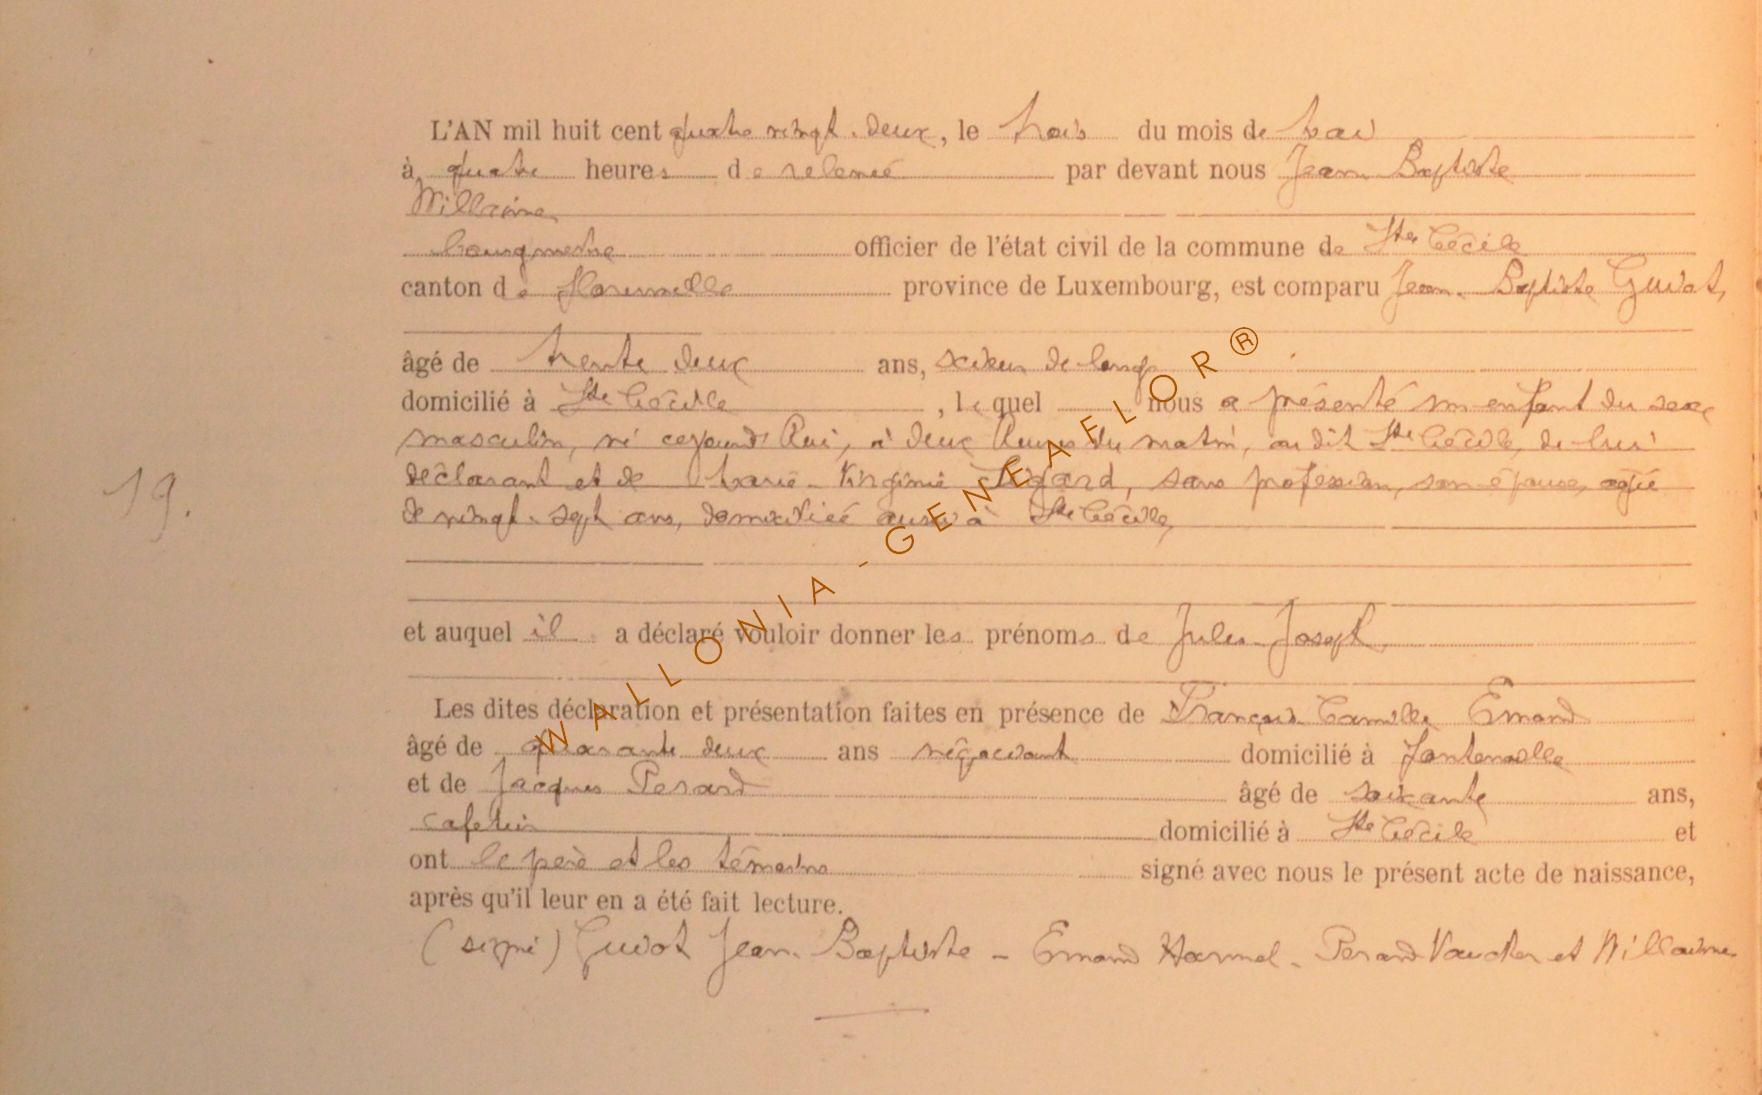 L'AN mil huit cent quatre vingt-deux, le trois du mois de mai
à quatre heures de relevée par devant nous Jean Baptiste
Willaime,
bourgmestre officier de l'état civil de la commune de Ste Cécile
canton de Florenville province de Luxembourg, est comparu Jean-Baptiste Guiot,
âgé de trente deux ans, scieur de long
domicilié à Ste Cécile, lequel nous a présenté un enfant du sexe
masculin, né cejourd'hui, à deux heures du matin, audit Ste Cécile, de lui
déclarant et de Marie-Virginie, sans profession, son épouse, agée
de vingt-sept ans, domiciliée aussi à Ste Cécile,
19.
et auquel il a déclaré vouloir donner les prénoms de Jules-Joseph,
Les dites déclaration et présentation faites en présence de François Camille Emond
âgé de quarante deux ans négociant domicilié à Fontenoille
et de Jacques Perard âgé de soixante ans,
cafetier domicilié à Ste Cécile et
ont le père et les témoins signé avec nous le présent acte de naissance,
après qu'il leur en a été fait lecture.
(signé) Guiot Jean-Baptiste - Emond Harmel - Perard et Willaime
WALLONIA-GENEAFLOR®